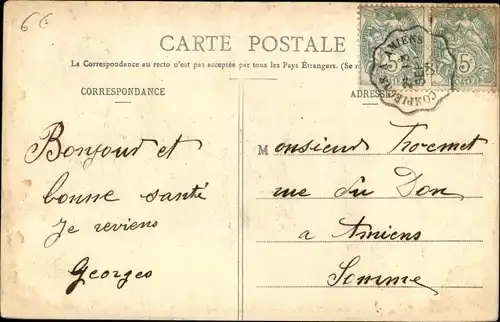 6€
CARTE POSTALE
La Correspondance au recto n'est pas acceptée par tous les Pays Étrangers. (Se
CORRESPONDANCE
ADRESSE
Bonjour et
bonne santé
Je reviens
Georges
Monsieur
rue du Don
a Amiens
Somme
AMIENS
COMPIÈGNE
5
5
POSTES